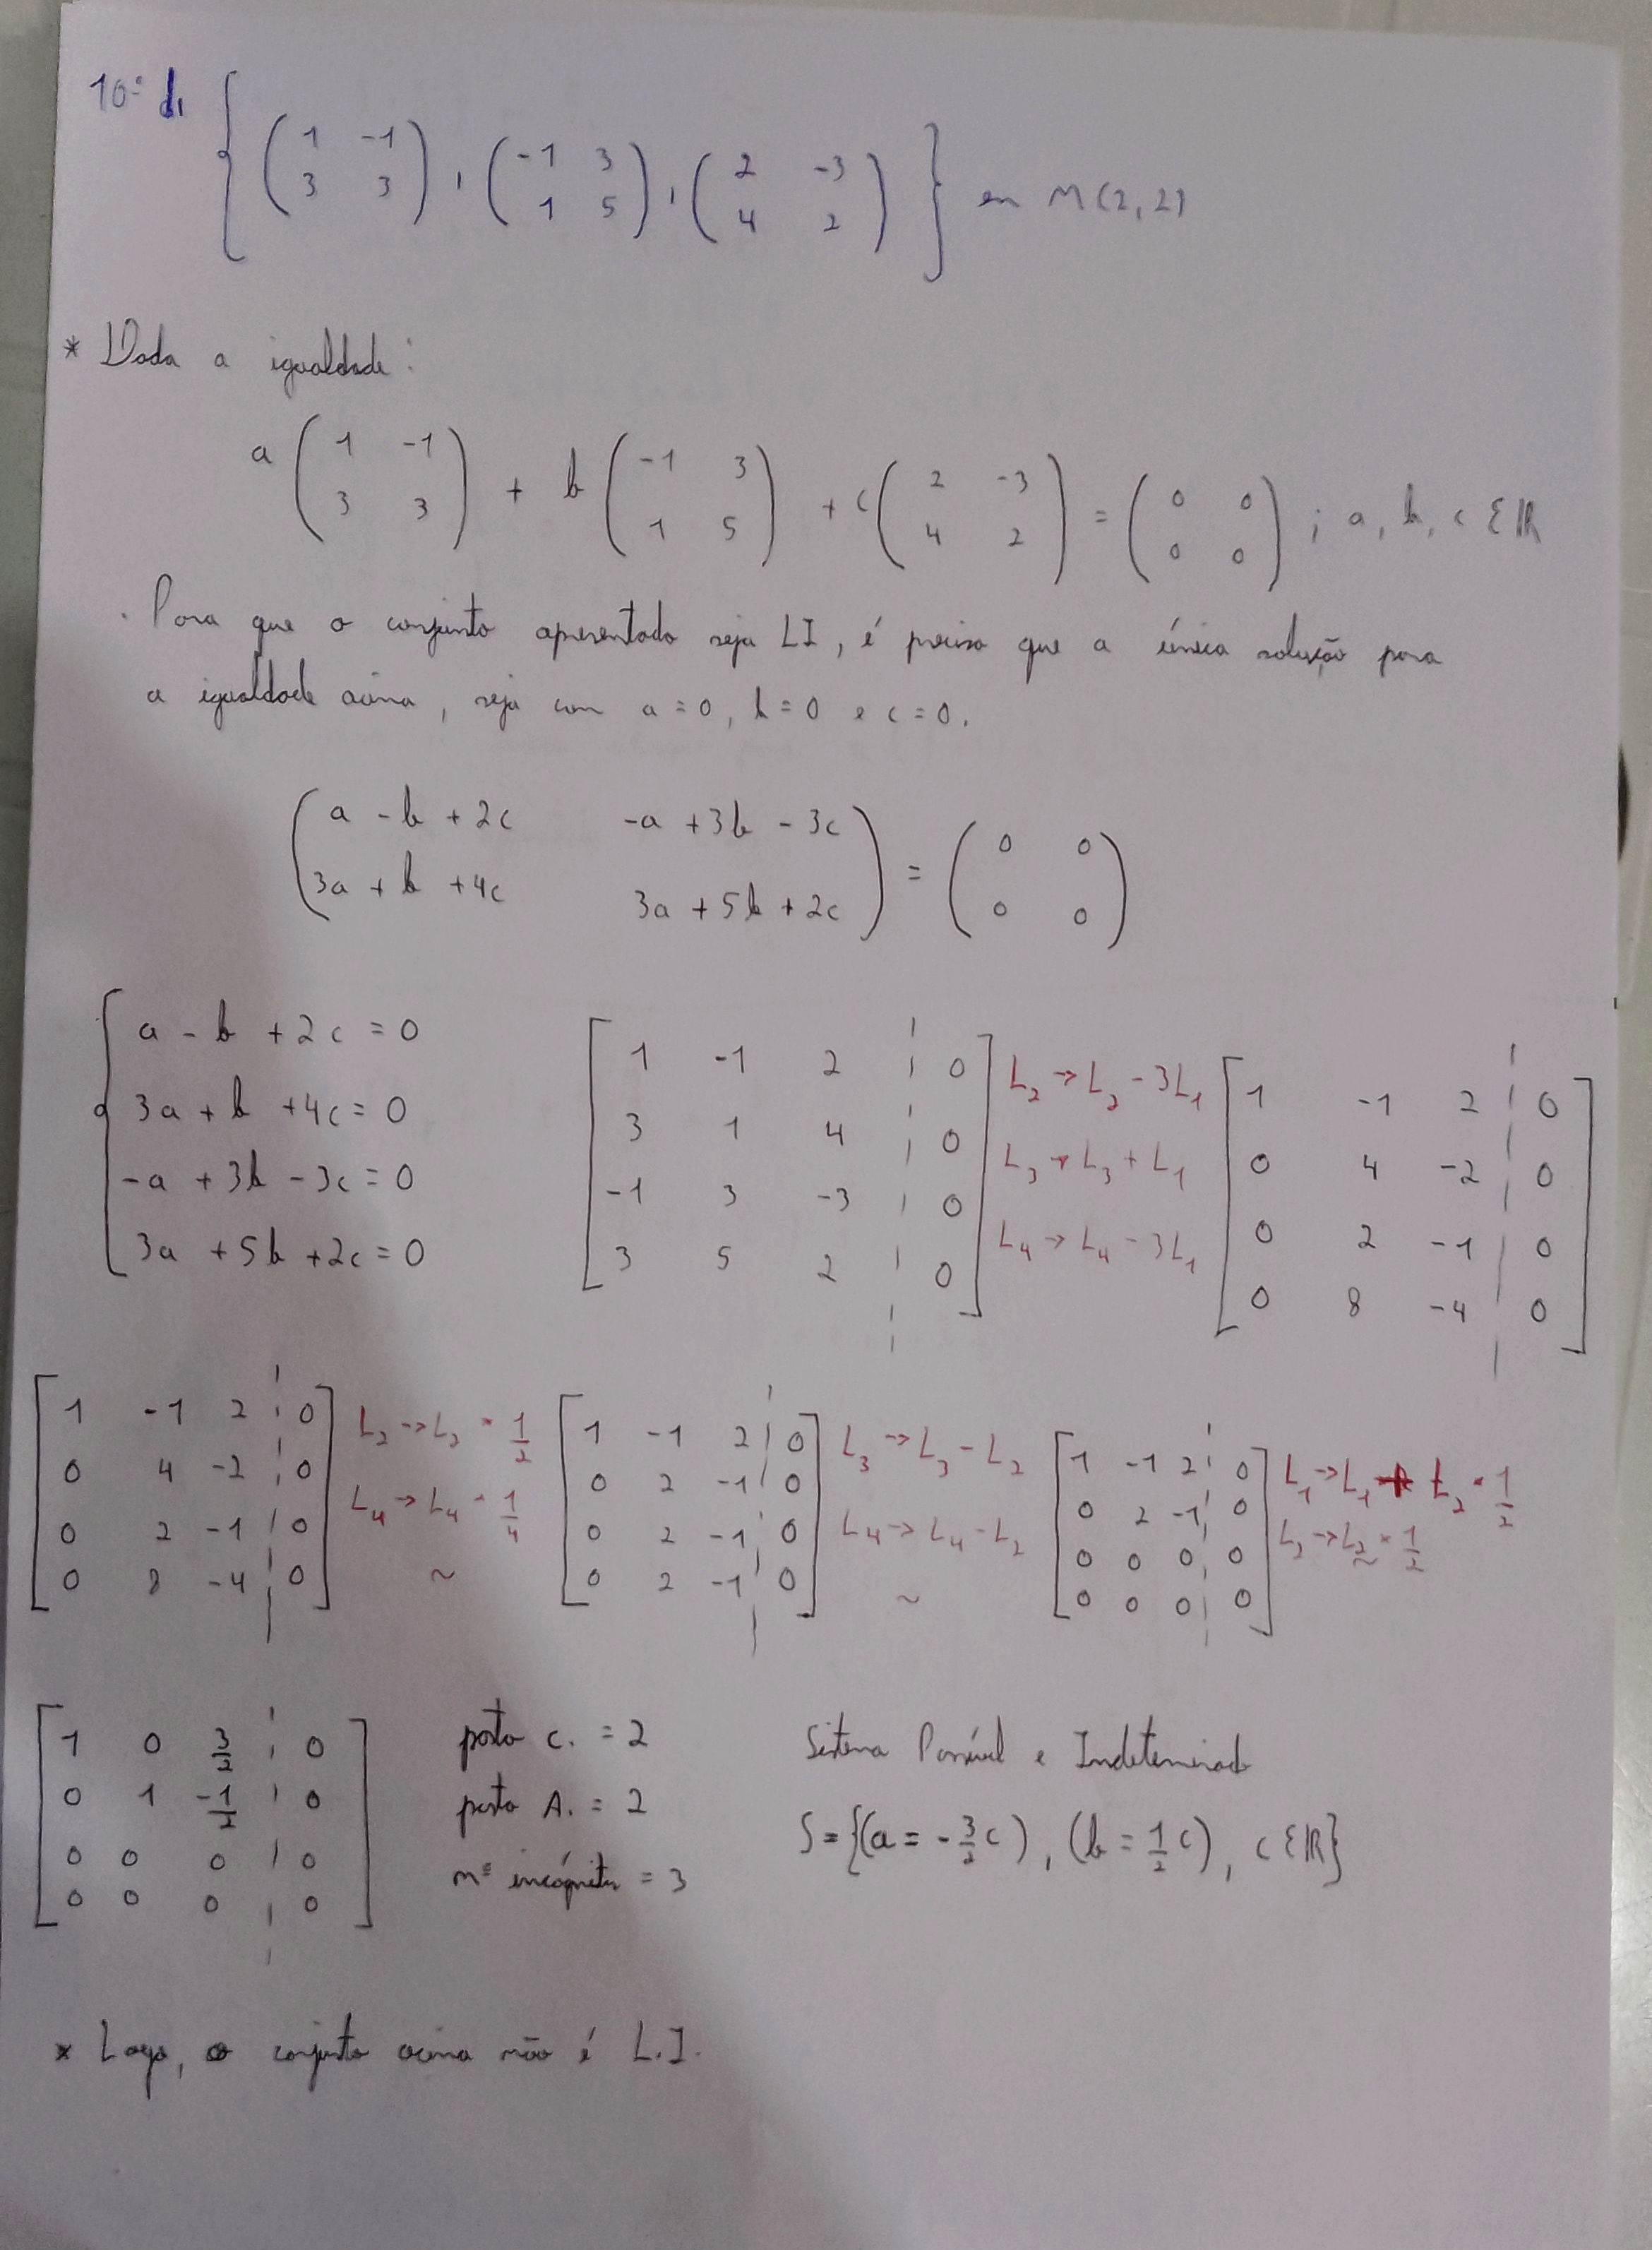 10º d, { ( 1 -1 ; 3 3 ) , ( -1 3 ; 1 5 ) , ( 2 -3 ; 4 2 ) } em M(2,2)
* Dada a igualdade:
a ( 1 -1 ; 3 3 ) + b ( -1 3 ; 1 5 ) + c ( 2 -3 ; 4 2 ) = ( 0 0 ; 0 0 ) ; a, b, c ∈ ℝ
. Para que o conjunto apresentado seja LI, é preciso que a única solução para
a igualdade acima, seja com a = 0, b = 0 e c = 0.
( a - b + 2c -a + 3b - 3c ; 3a + b + 4c 3a + 5b + 2c ) = ( 0 0 ; 0 0 )
{ a - b + 2c = 0
3a + b + 4c = 0
-a + 3b - 3c = 0
3a + 5b + 2c = 0
[ 1 -1 2 ¦ 0 ; 3 1 4 ¦ 0 ; -1 3 -3 ¦ 0 ; 3 5 2 ¦ 0 ]
L₂ → L₂ - 3L₁
L₃ → L₃ + L₁
L₄ → L₄ - 3L₁
[ 1 -1 2 ¦ 0 ; 0 4 -2 ¦ 0 ; 0 2 -1 ¦ 0 ; 0 8 -4 ¦ 0 ]
[ 1 -1 2 ¦ 0 ; 0 4 -2 ¦ 0 ; 0 2 -1 ¦ 0 ; 0 8 -4 ¦ 0 ]
L₂ → L₂ · 1/2
L₄ → L₄ · 1/4
~
[ 1 -1 2 ¦ 0 ; 0 2 -1 ¦ 0 ; 0 2 -1 ¦ 0 ; 0 2 -1 ¦ 0 ]
L₃ → L₃ - L₂
L₄ → L₄ - L₂
~
[ 1 -1 2 ¦ 0 ; 0 2 -1 ¦ 0 ; 0 0 0 ¦ 0 ; 0 0 0 ¦ 0 ]
L₁ → L₁ + L₂ · 1/2
L₂ → L₂ · 1/2
~
[ 1 0 3/2 ¦ 0 ; 0 1 -1/2 ¦ 0 ; 0 0 0 ¦ 0 ; 0 0 0 ¦ 0 ]
posto C. = 2
posto A. = 2
nº incógnitas = 3
Sistema Possível e Indeterminado
S = {(a = -3/2 c), (b = 1/2 c), c ∈ ℝ}
* Logo, o conjunto acima não é L.I.